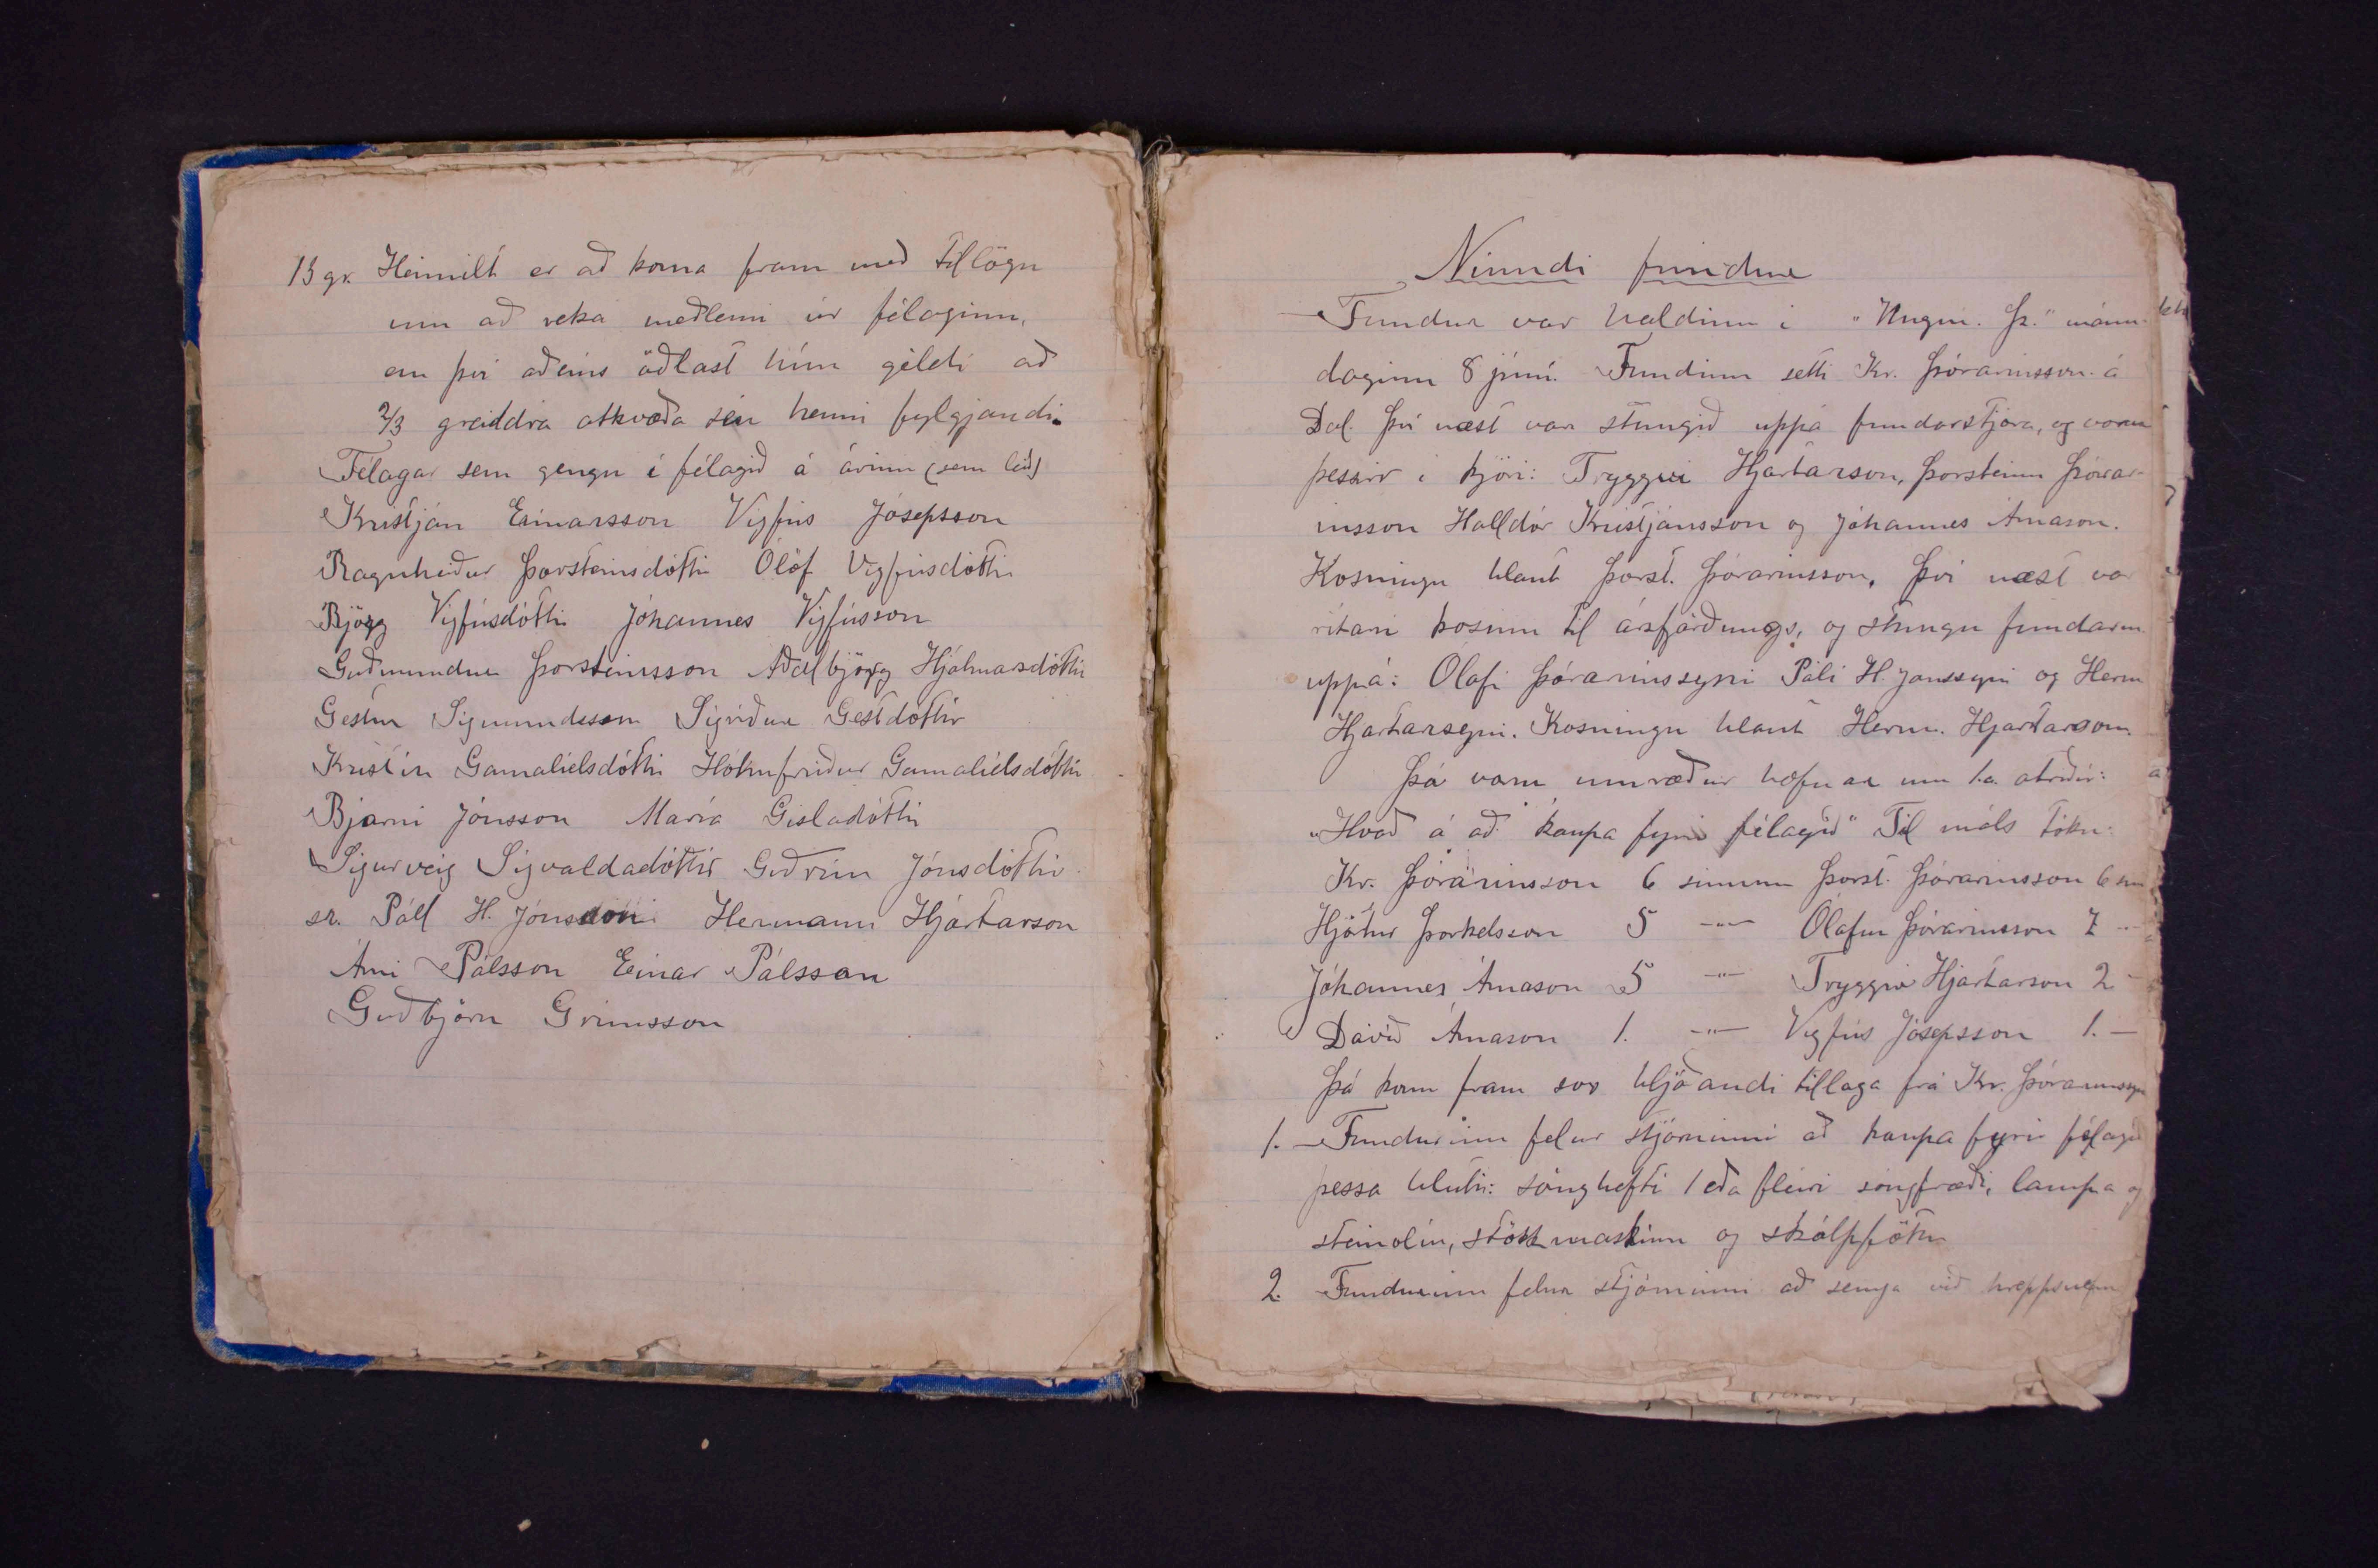 13 gr. Heimilt er að koma fram með tillögu
um að reka meðlemi úr félaginu,
en því aðeins öðlast hún gildi að
2/3 greiddra atkvæða séu henni fylgjandi.
Félagar sem gengu í félagið á árinu (sem leið)
Kristján Einarsson Vigfús Jósepsson
Ragnheiður Þorsteinsdóttir Ólöf Vigfúsdóttir
Björg Vigfúsdóttir Jóhannes Vigfússon
Guðmundur Þorsteinsson Aðalbjörg Hjálmarsdóttir
Gestur Sigmundsson Sigríður Gestdóttir
Kristín Gamalíelsdóttir Hólmfríður Gamalíelsdóttir
Bjarni Jónsson María Gísladóttir
Sigurveig Sigvaldadóttir Guðrún Jónsdóttir
sr. Páll H. Jónsson Hermann Hjartarson
Árni Pálsson Einar Pálsson
Guðbjörn Grímsson
Níundi fundur
Fundur var haldinn í "Ungm. Þ." mánu-
daginn 8 júní. Fundinn setti Kr. Þórarinsson á
Dal. Því næst var stungið uppá fundarstjóra, og voru
þessir í kjöri: Tryggvi Hjartarson, Þorsteinn Þórar-
insson Halldór Kristjánsson og Jóhannes Árnason.
Kosningu hlaut Þorst. Þórarinsson, Því næst var
ritari kosinn til ársfjórðungs, og stungu fundarm.
uppá: Ólafi Þórarinssyni Páli H. Jónssyni og Herm
Hjartarsyni. Kosningu hlaut Herm. Hjartarson
Þá voru umræður hafnar um 1.a. atriðir:
"Hvað á að kaupa fyrir félagið" Til máls tóku:
Kr. Þórarinsson 6 sinnum Þorst. Þórarinsson 6 sin
Hjötur Þorkelsson 5 -"- Ólafur Þórarinsson 7 -
Jóhannes Árnason 5 -"- Tryggvi Hjartarson 2 -
Davíð Árnason 1. -"- Vigfús Jósepsson 1. -
Þá kom fram svo hljóðandi tillaga frá Kr. Þórarinssyni
1. Fundurinn felur stjórninni að kaupa fyrir félagið
þessa hluti: sönghefti 1 eða fleiri söngfræði, lampa og
steinolíu, stökkmaskínu og skólpfötu
2. Fundurinn felur stjórninni að semja við hreppsnefn